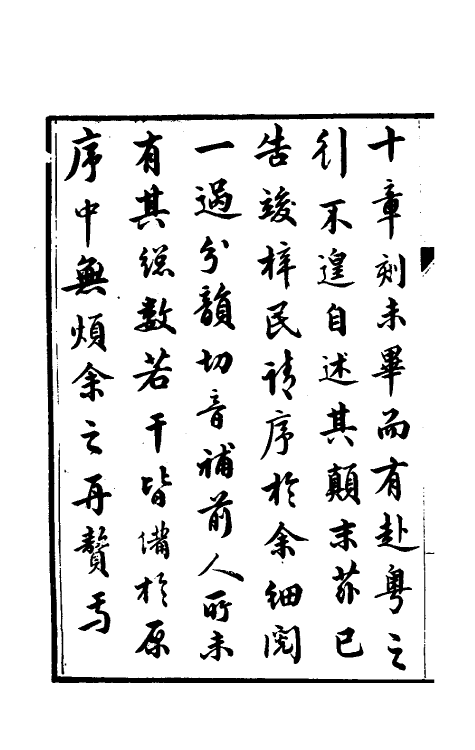 十章刻未畢而有赴粤之
行不遑自述其顛末茲已
告竣梓民請序於余細閱
一過分韻切音補前人所未
有其總數若干皆備於原
序中無煩余之再贅焉